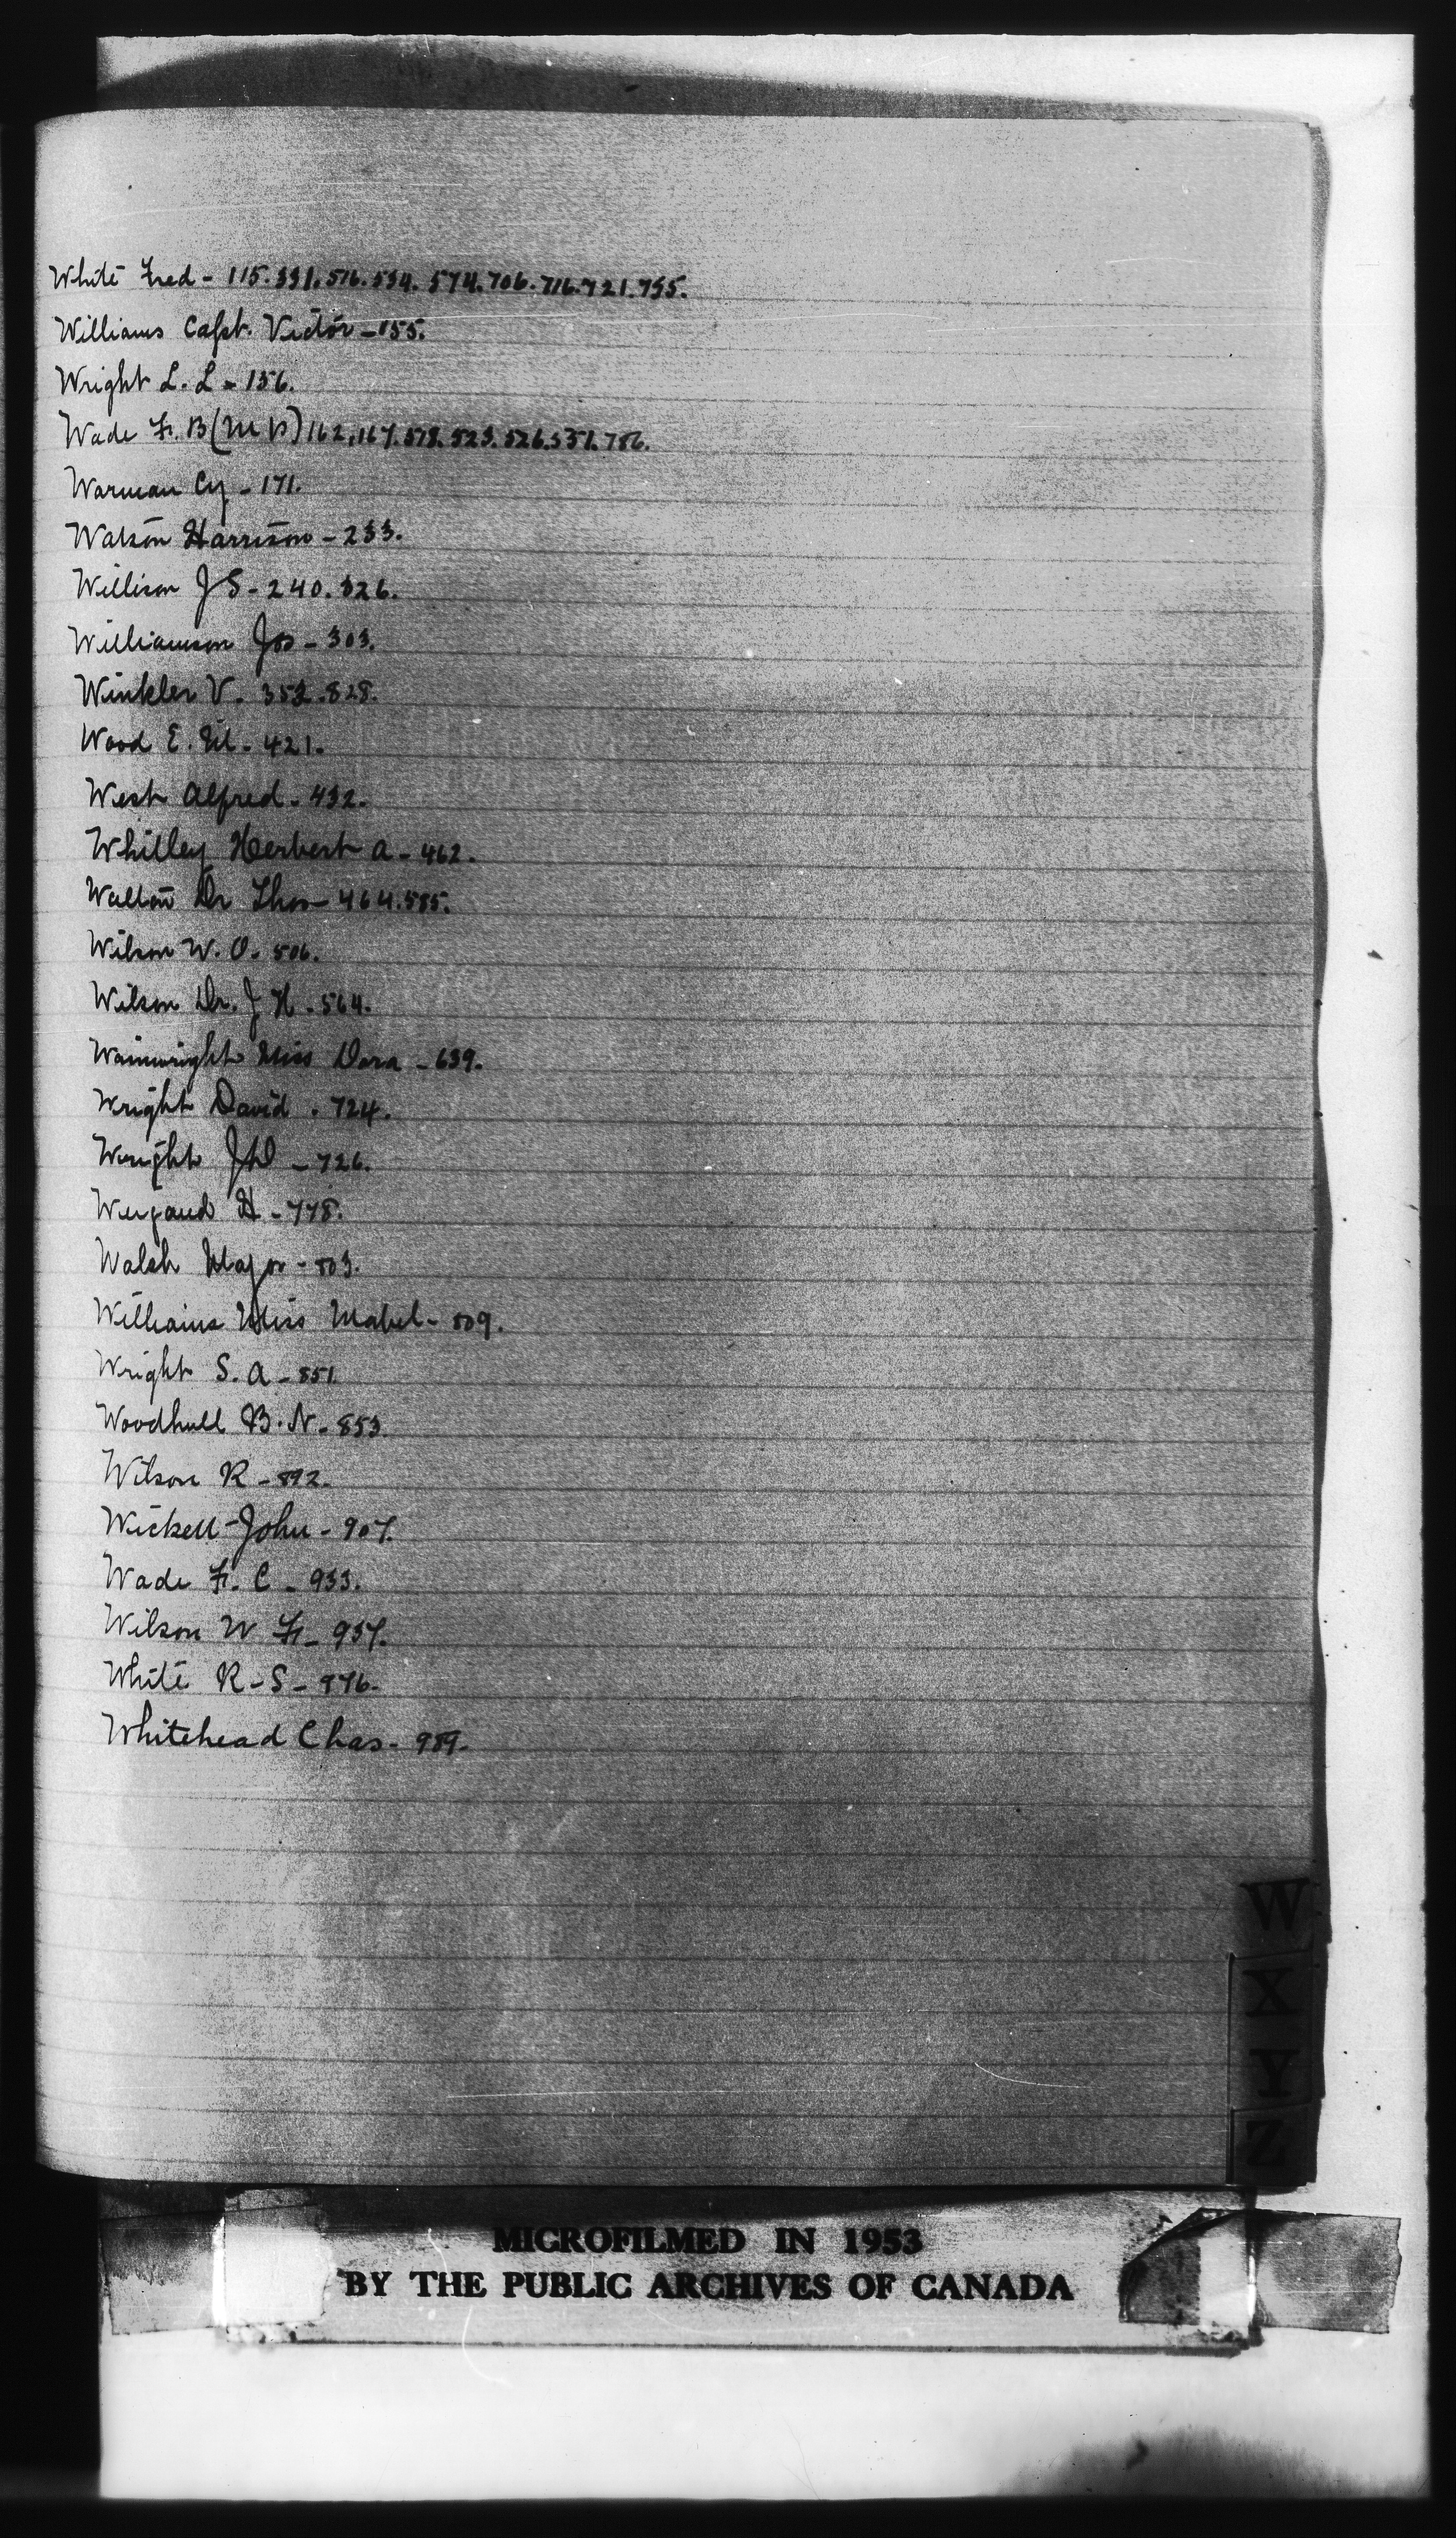 White Fred - 115. 331. 516. 534. 574. 706. 716. 721. 755.
Williams Capt. Victor - 155.
Wright L. L - 156.
Wade F. B (M P) 162. 167. 523. 526. 531. 786.
Warman Cy - 171.
Watson Harrison - 233.
Willison J S - 240. 326.
Williamson Jos - 303.
Winkler V. 352. 828.
Wood E. M. - 421.
West Alfred - 432.
Whitley Herbert A - 462.
Walton Dr Thos - 464. 585.
Wilson W. O. 506.
Wilson Dr. J H - 564.
Wainwright Miss Dora - 639.
Wright David . 724.
Wright J D - 726.
Weigand H - 778.
Walsh Major - 803.
Williams Miss Mabel - 809.
Wright S. A - 851.
Woodhull B. N - 853.
Wilson R - 892.
Wickett John - 907.
Wade F. C - 933.
Wilson W F - 957.
White R - S - 976-
Whitehead Chas - 989-
W
X
Y
Z
MICROFILMED IN 1953
BY THE PUBLIC ARCHIVES OF CANADA